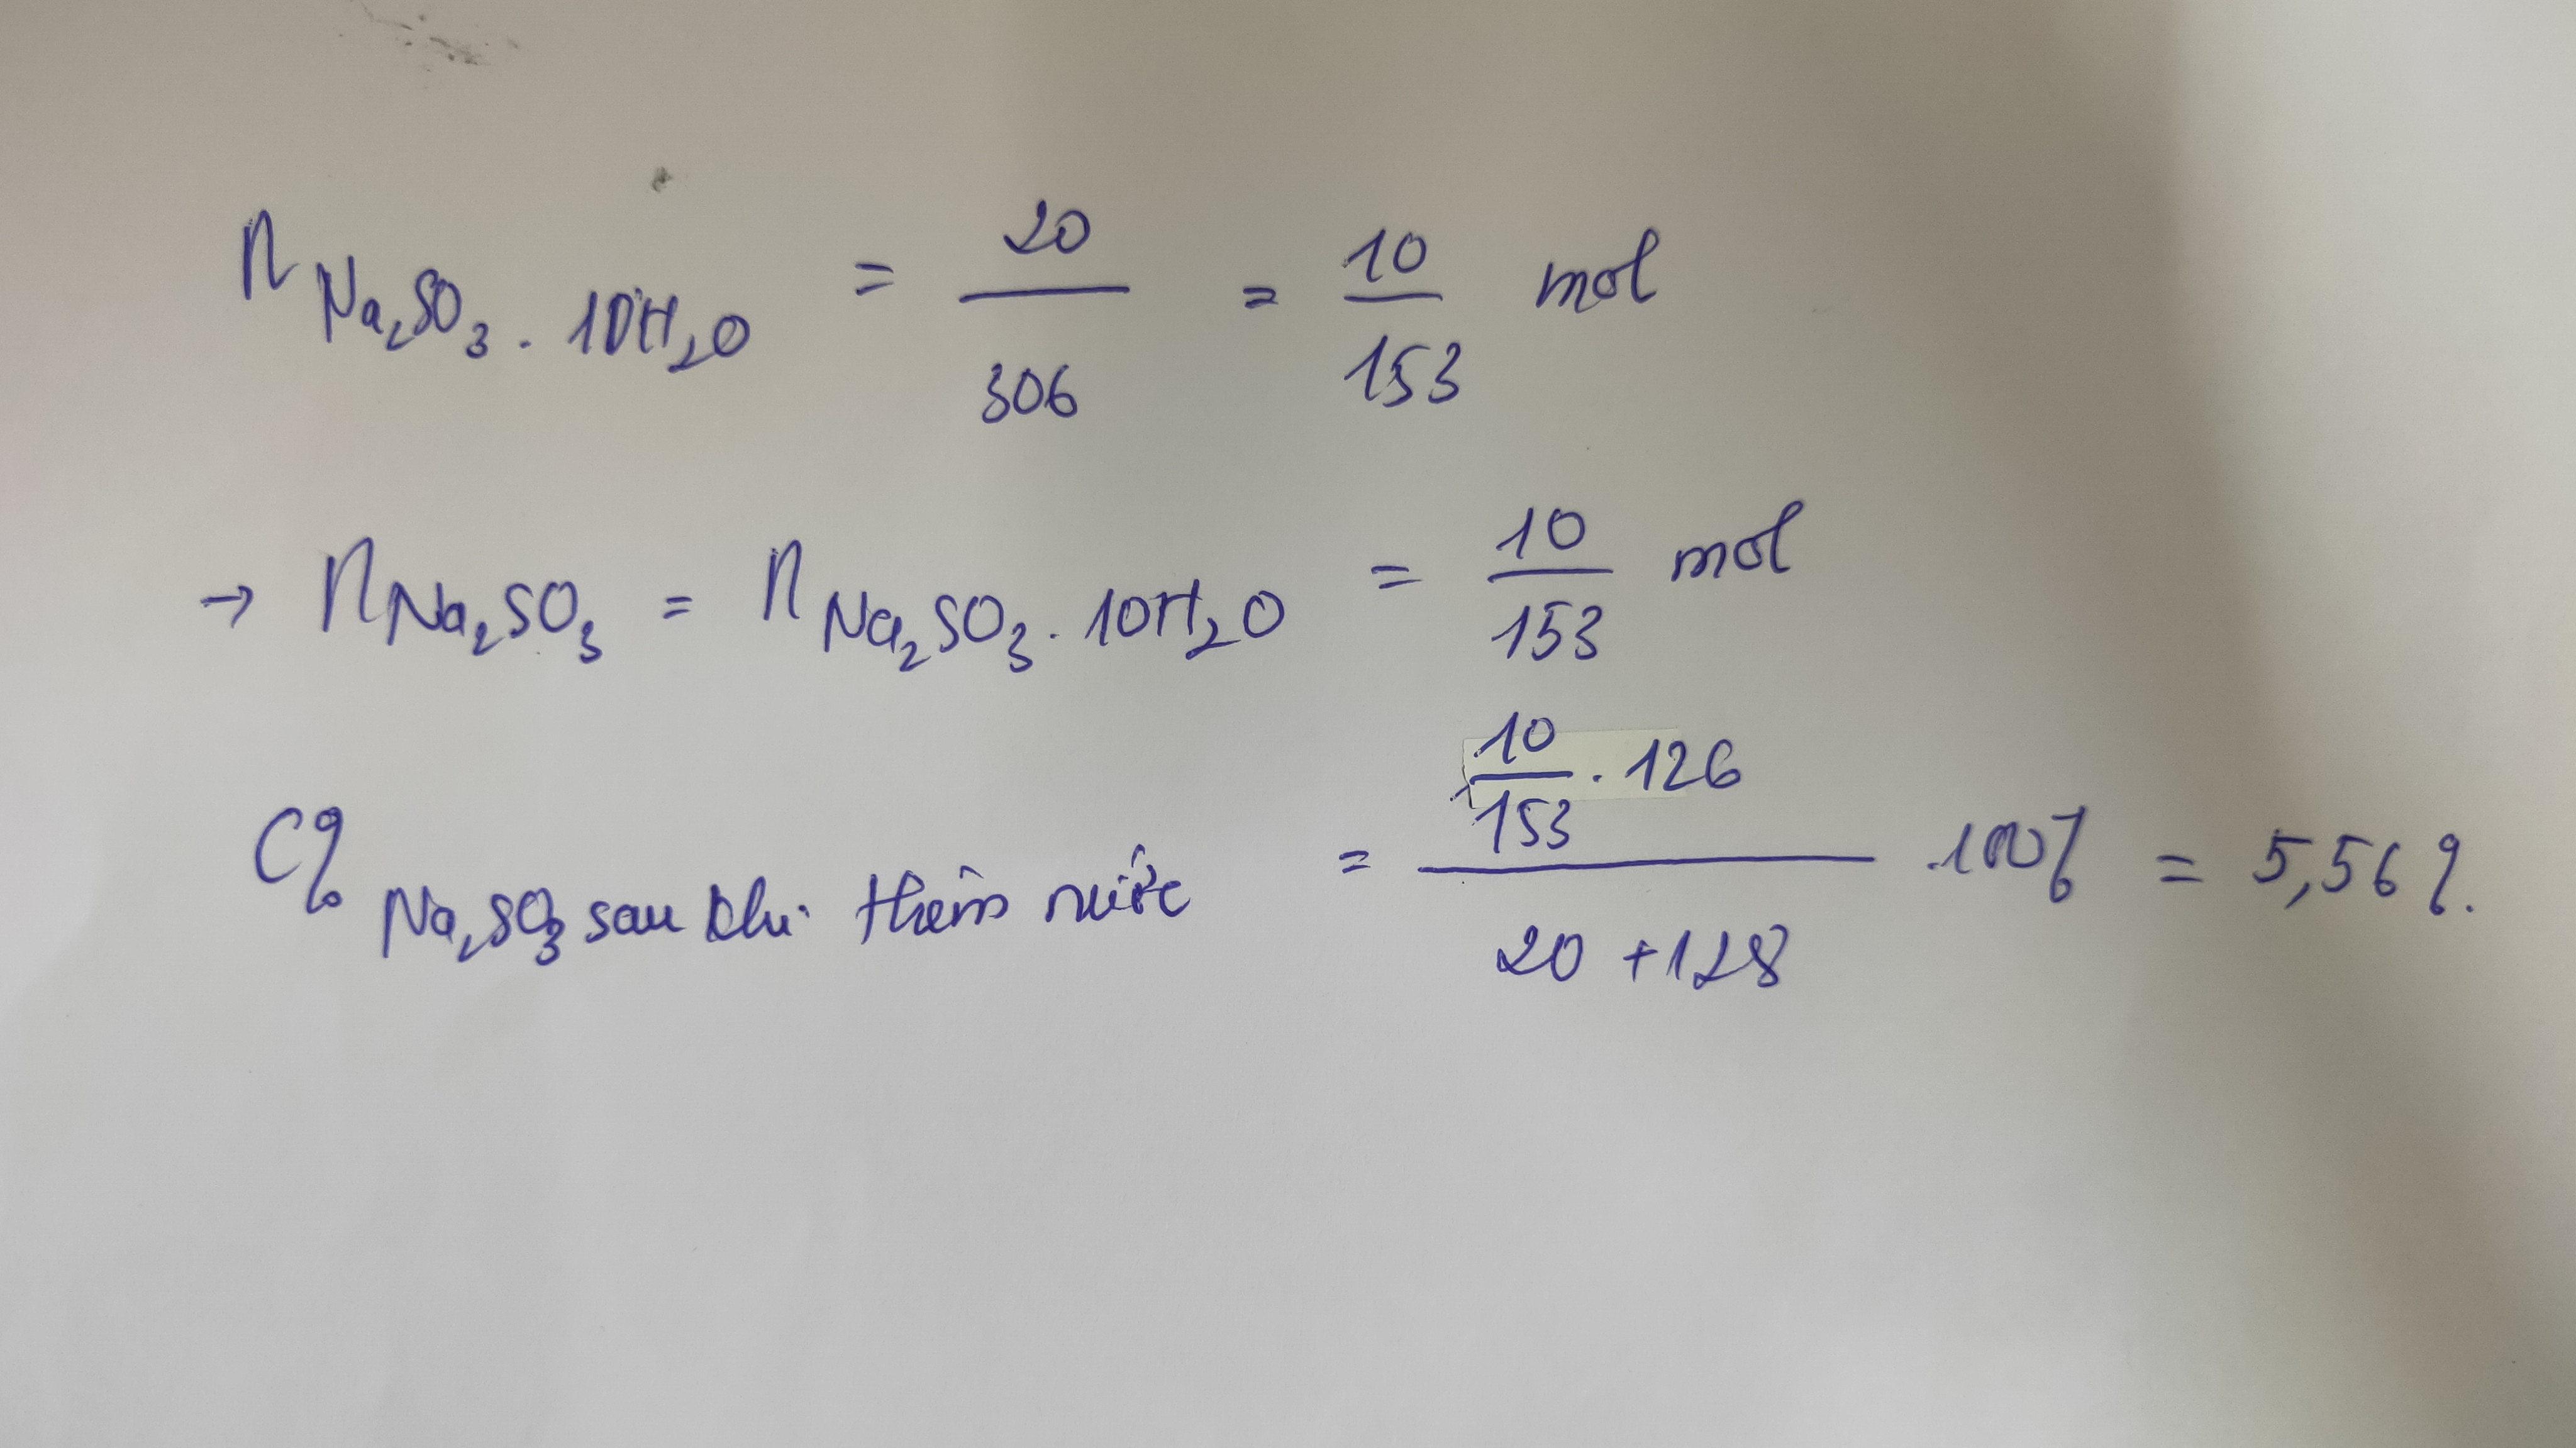 n Na₂SO₃ . 10H₂O = 20/306 = 10/153 mol
→ n Na₂SO₃ = n Na₂SO₃ . 10H₂O = 10/153 mol
C% Na₂SO₃ sau khi thêm nước = (10/153 . 126)/(20 + 128) .100% = 5,56%.